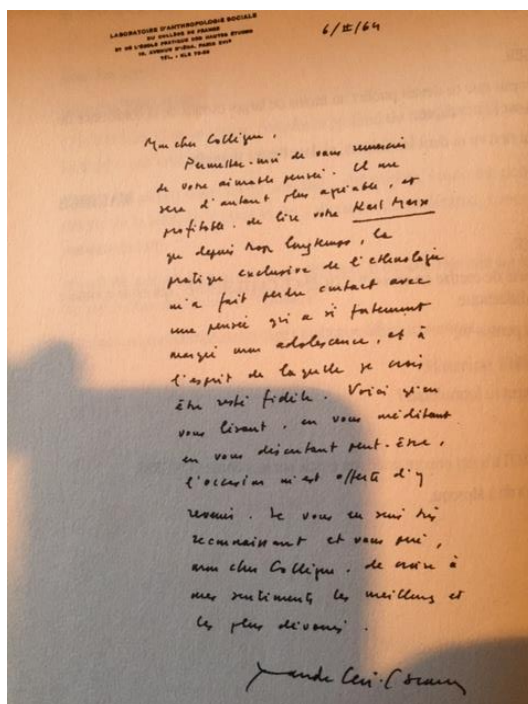 LABORATOIRE D'ANTHROPOLOGIE SOCIALE
DU COLLÈGE DE FRANCE
ET DE L'ÉCOLE PRATIQUE DES HAUTES ÉTUDES
AVENUE D'IÉNA, PARIS
TÉL.
6/II/64
Mon cher Collègue,
Permettez-moi de vous remercier
de votre aimable pensée. Il me
sera d'autant plus agréable, et
profitable, de lire votre Karl Marx
que depuis trop longtemps, la
pratique exclusive de l'ethnologie
m'a fait perdre contact avec
une pensée qui a si fortement
marqué mon adolescence, et à
l'esprit de laquelle je crois
être resté fidèle. Voici qu'en
vous lisant, en vous méditant
en vous discutant peut-être,
l'occasion m'est offerte d'y
revenir. Je vous en suis très
reconnaissant et vous prie,
mon cher Collègue, de croire à
mes sentiments les meilleurs et
les plus dévoués.
Claude Lévi-Strauss